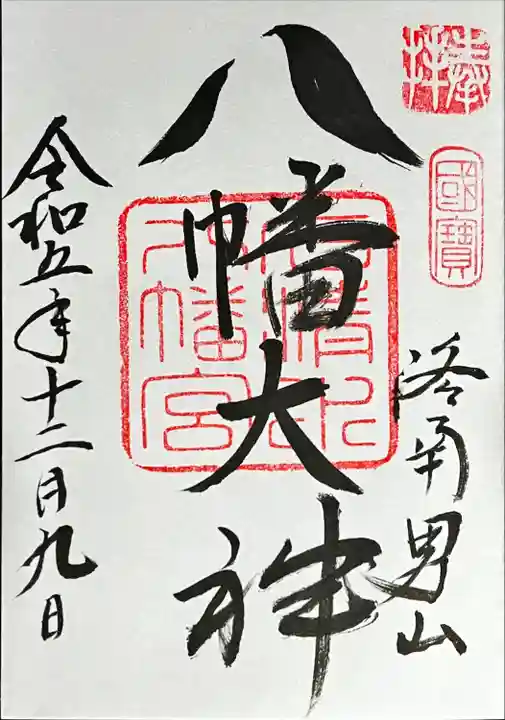 奉拝
國寶
洛南男山
八幡大神
石清水
八幡宮
令和五年十二月九日